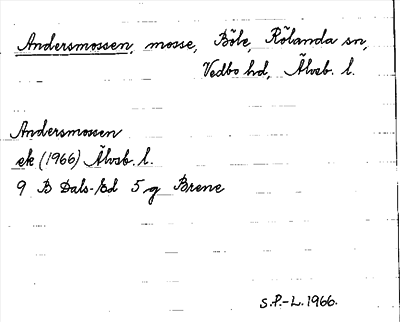 Andersmossen, mosse, Böle, Rölanda sn,
Vedbo hd, Älvsb. l.
Andersmossen
ek (1966) Älvsb. l.
9 B Dals-Ed 5 g Brene
S.P.-L. 1966.